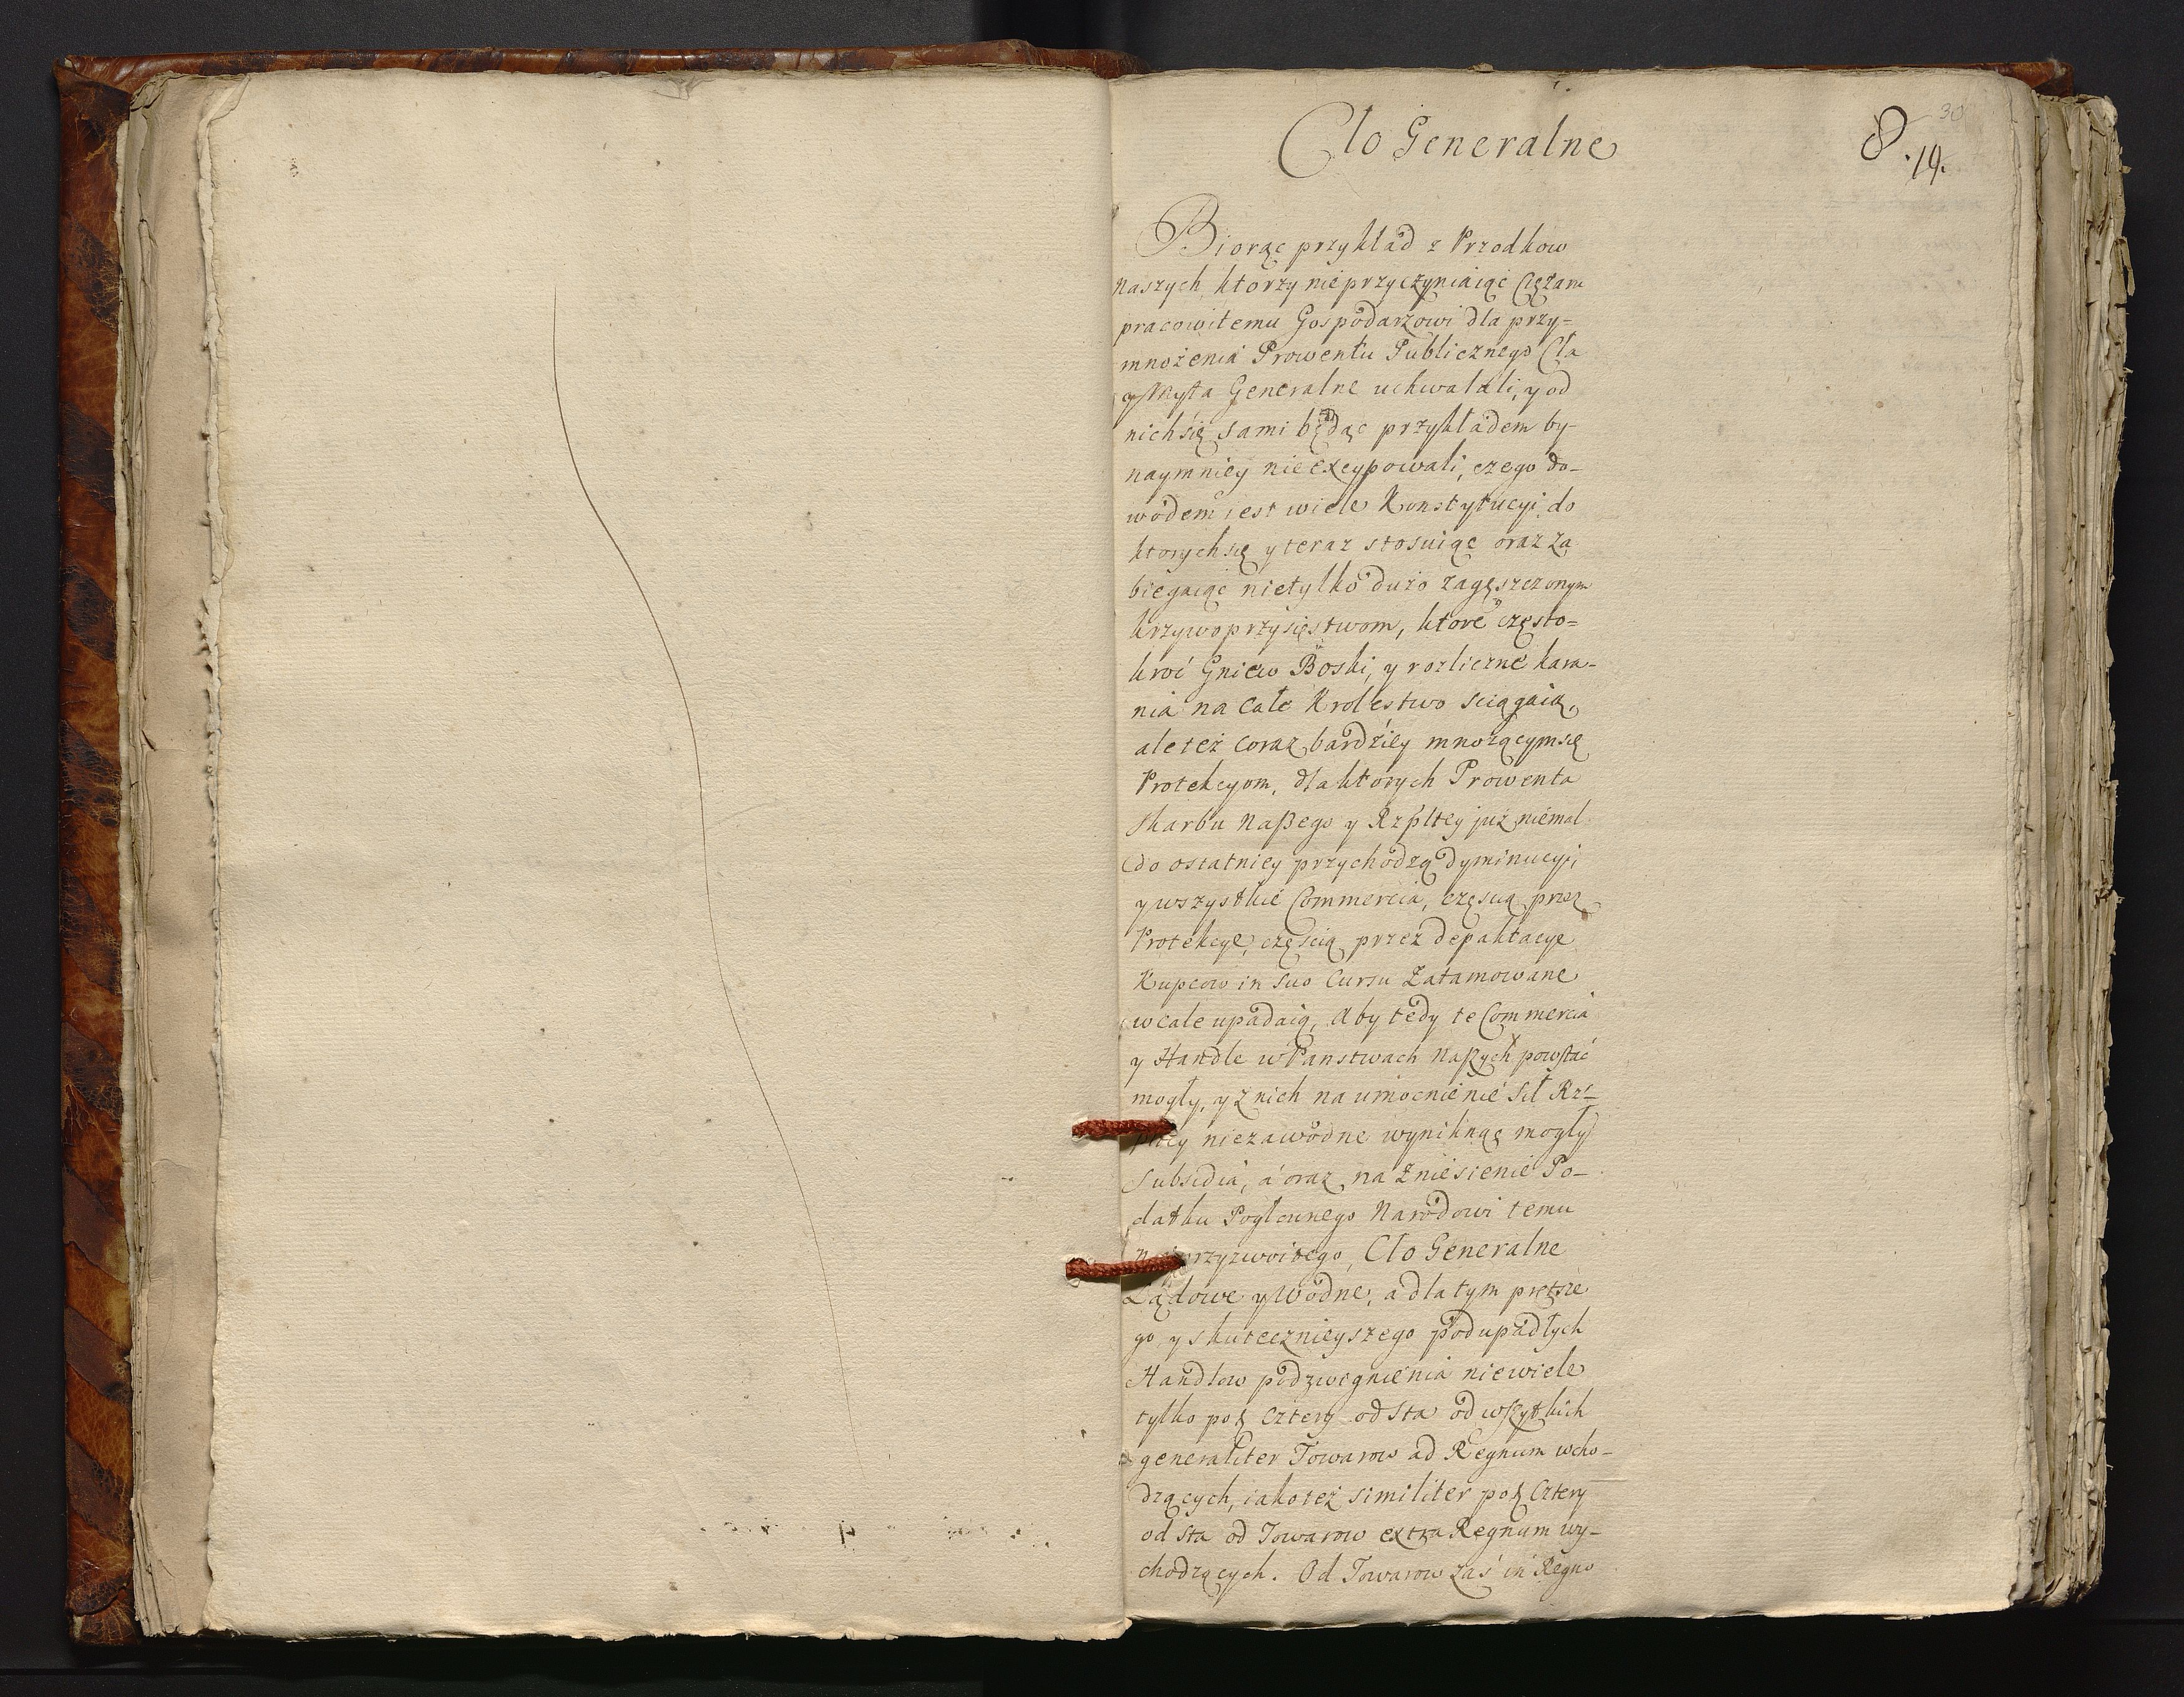 Cło Generalne
8.
30
19.
Biorąc przykład z Przodkow
Naszych, ktorzy nieprzyczyniaiąc Ciężaru
pracowitemu Gospodarzowi dla przy=
mnożenia Prowentu Publicznego Cła
y Myta Generalne uchwalali, y od
nich się sami będąc przykładem by-
naymniey nie excypowali, czego do-
wodem iest wiele Konstytucyi, do
ktorych się y teraz stosuiąc oraz za
biegaiąc nietylko dużo zagęszczonym
krzywoprzysięstwom, ktore często=
kroć Gniew Boski, y rozliczne kara-
nia na całe Krolestwo sciągaią,
ale też coraz bardziey mnożącym się
Protekcyom, dla ktorych Prowenta
Skarbu Naszego y Rzpltey już niemal
do ostatniey przychodzą dyminucyi,
y wszystkie Commercia, częscią przez
Protekcye, częscią przez depaktacye
Kupcow in suo Cursu Zatamowane
wcale upadaią, Aby tedy te Commercia
y Handle w Panstwach Naszych powstać
mogły, y z nich na umocnienie Sił Rz-
pltey niezawodne wyniknąć mogły
Subsidia, á oraz na Zniesienie Po-
datku Pogłownego Narodowi temu
przyzwoitego, Cło Generalne
Lądowe y Wodne, a dla tym prętsze
go y skutecznieyszego podupadłych
Handlow podzwignienia niewiele
tylko puł Cztery od Sta od wszytkich
generaliter Towarow ad Regnum wcho-
dzących, iako też similiter puł Cztery
od sta od Towarow extra Regnum wy-
chodzących. Od Towarow zaś in Regno